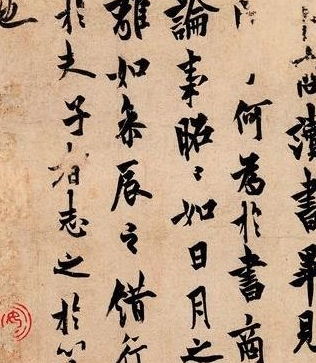 商讀書畢見
何爲於書商
論事昭〻如日月之
離如參辰之錯行
於夫子者志之於
也